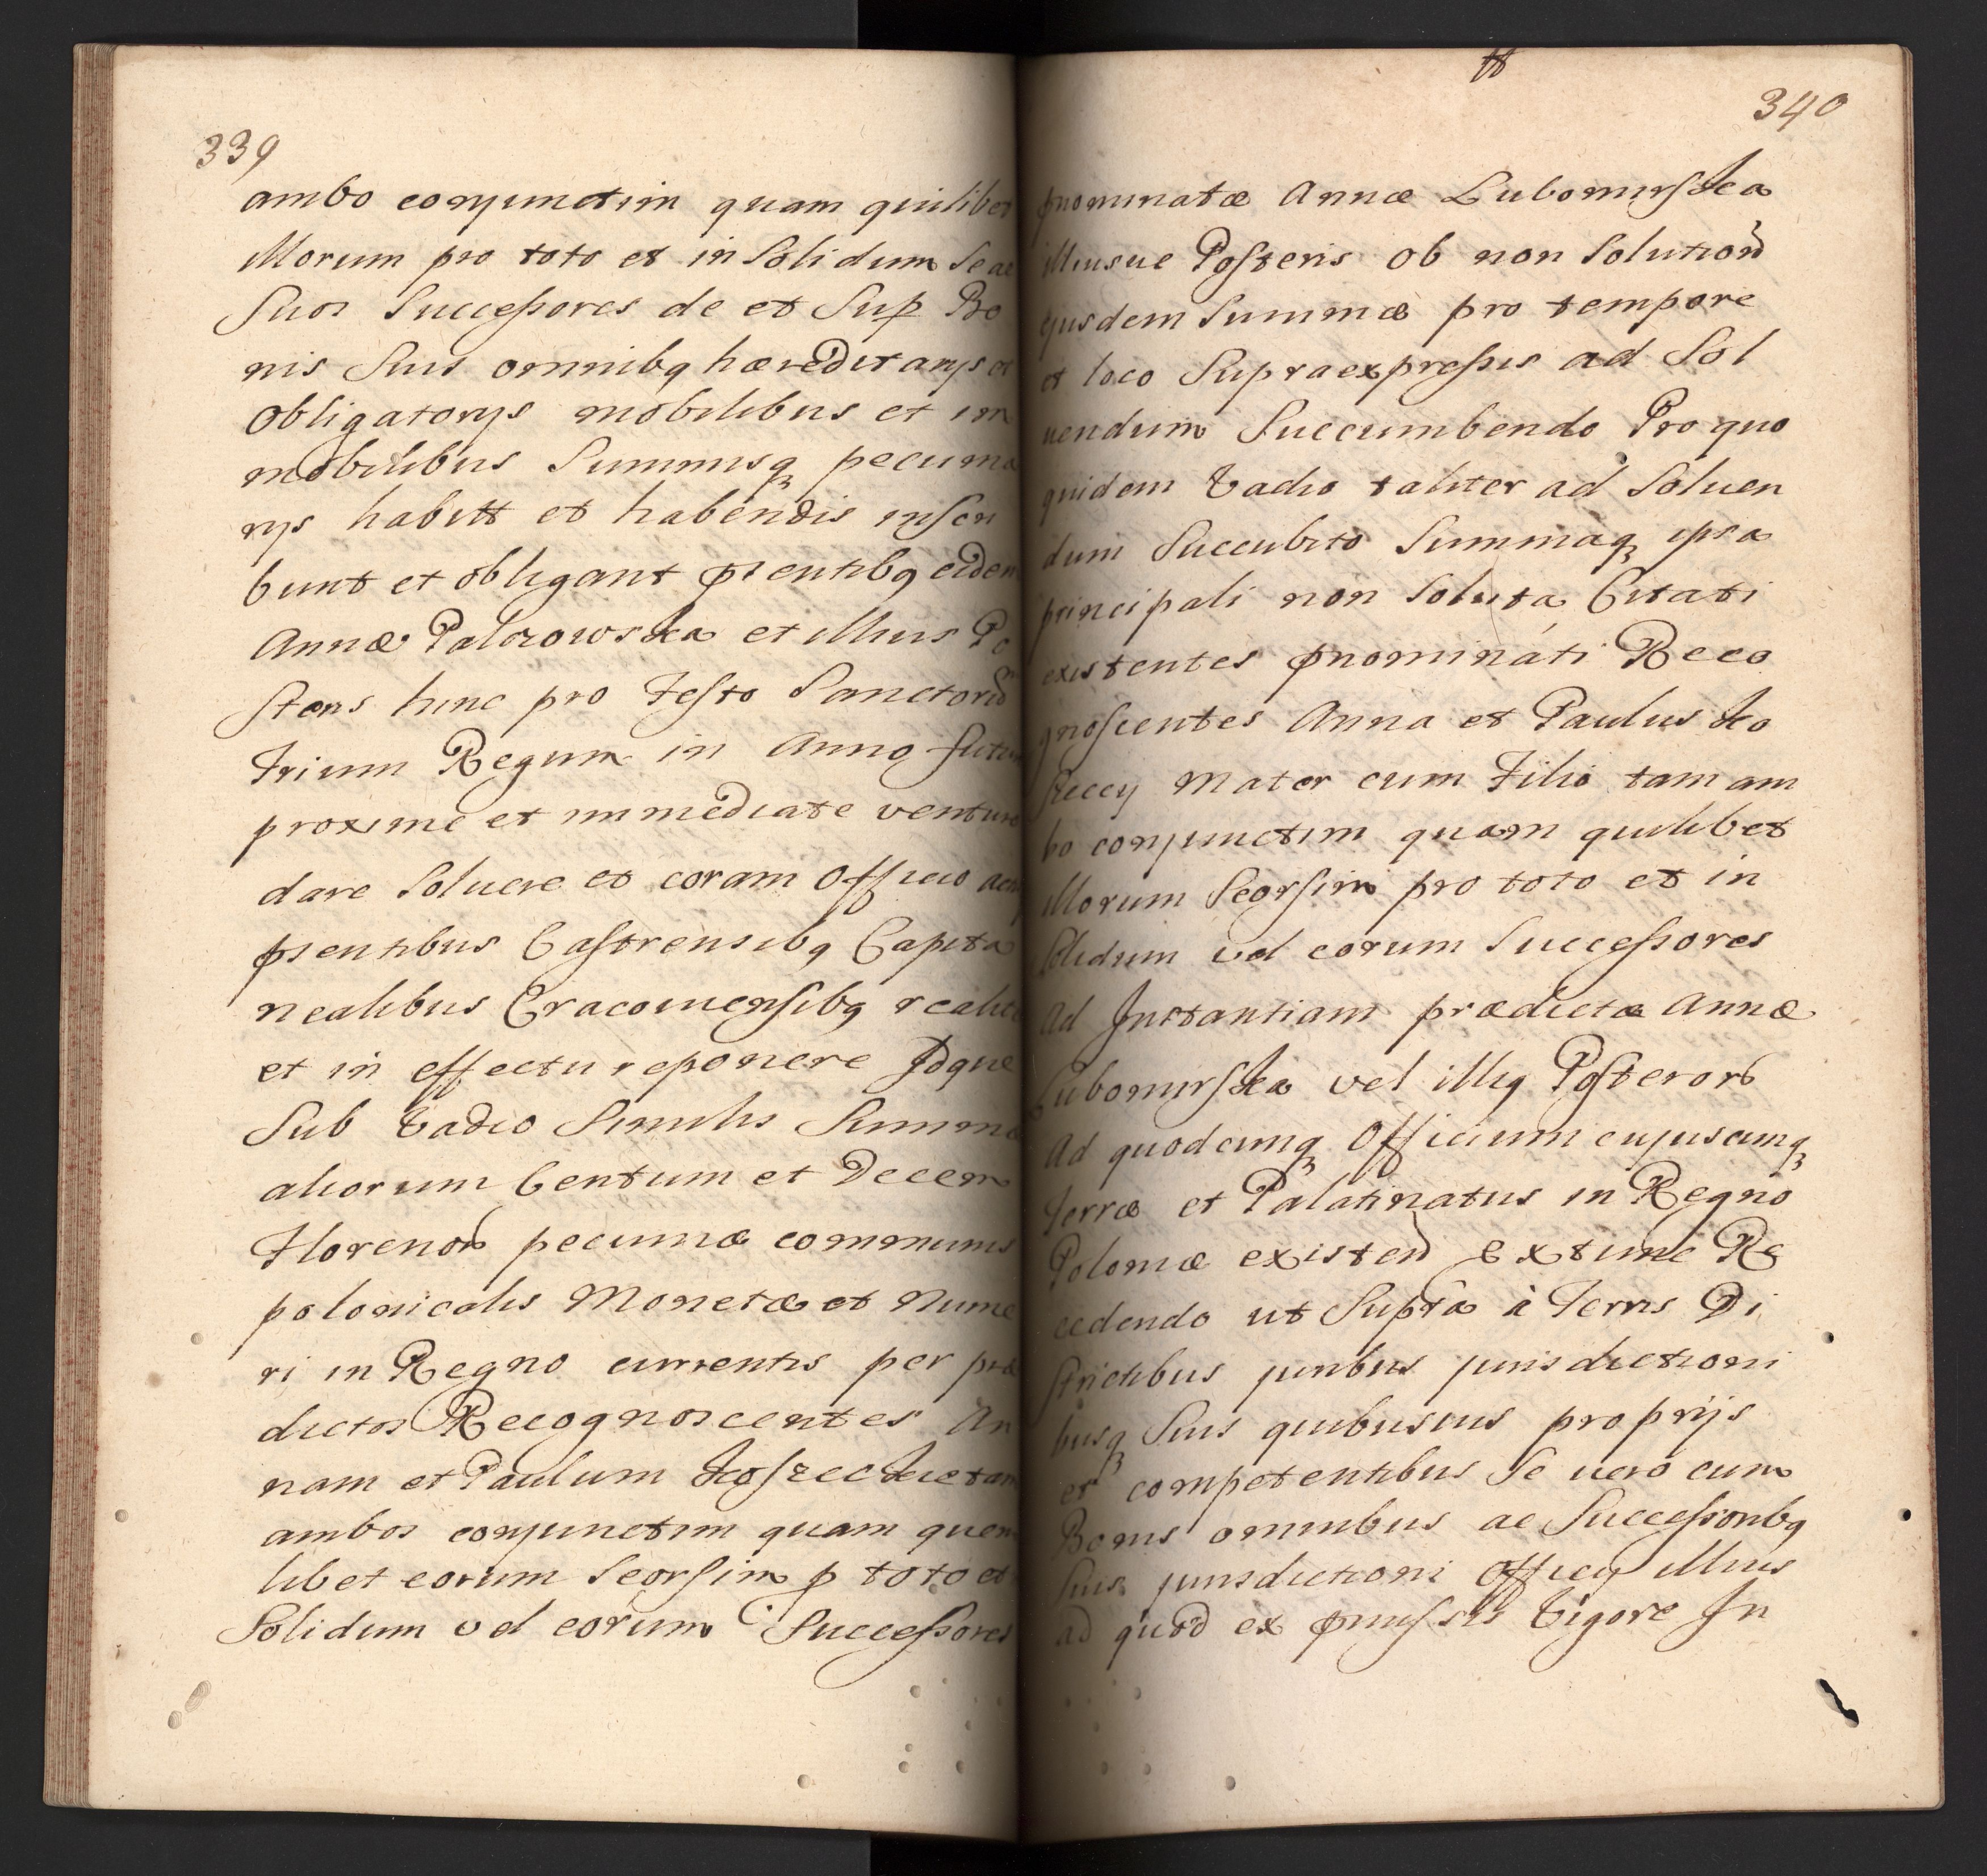 339
ambo conjunctim quam quilibet
illorum pro toto et in Solidum Se ac
Suos Successores de et Sup Bo
nis Suis omnibq hæreditarijs et
obligatorijs mobilibus et im
mobilibus Summisq pecunia
rijs habitt et habendis inscri
bunt et obligant pntibq eidem
Annæ Palczowska et illius Po
steris hinc pro Festo Sanctorū
Trium Regum in Anno futuro
proxime et immediate venturo
dare Soluere et coram Officio actis
pntibus Castrensibq Capita
nealibus Cracouiensibq realiter
et in effectu reponere Idque
Sub Vadio Similis Summæ
aliorum Centum et Decem
Florenor pecuniæ communis
polonicalis Monetæ et Nume
ri in Regno currentis per præ
dictos Recognoscentes An
nam et Paulum Koszeckie tam
ambos conjunctim quam quem
libet eorum Seorsim p toto et
Solidum vel eorum Successores
340
pnominatæ Annæ Lubomirska
illiusue Posteris ob non Solution
ejusdem Summæ pro tempore
et loco Supraexpressis ad Sol
uendum Succumbendo Pro quo
quidem Vadio taliter ad Soluen
dum Succubito Summaq ipsa
principali non Soluta Citati
existentes pnominati Reco
gnoscentes Anna et Paulus Ko
szeccy Mater cum Filio tam am
bo conjunctim quam quilibet
illorum Seorsim pro toto et in
Solidum vel eorum Successores
Ad Instantiam prædictæ Annæ
Lubomirska vel illiq Posteror
Ad quodcunq Officium cujuscunq
Terræ et Palatinatus in Regno
Poloniæ existen Extunc Re
cedendo ut Supra à Terris Di
strictibus juribus jurisdictioni
busq Suis quibusuis proprijs
et competentibus Se uero cum
Bonis omnibus ac Successoribq
Suis jurisdictioni Officij illius
ad quod ex pmissis Vigore In